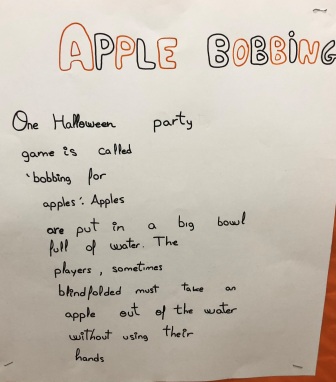 APPLE BOBBING
One Halloween party
game is called
'bobbing for
apples'. Apples
are put in a big bowl
full of water. The
players, sometimes
blindfolded must take an
apple out of the water
without using their
hands